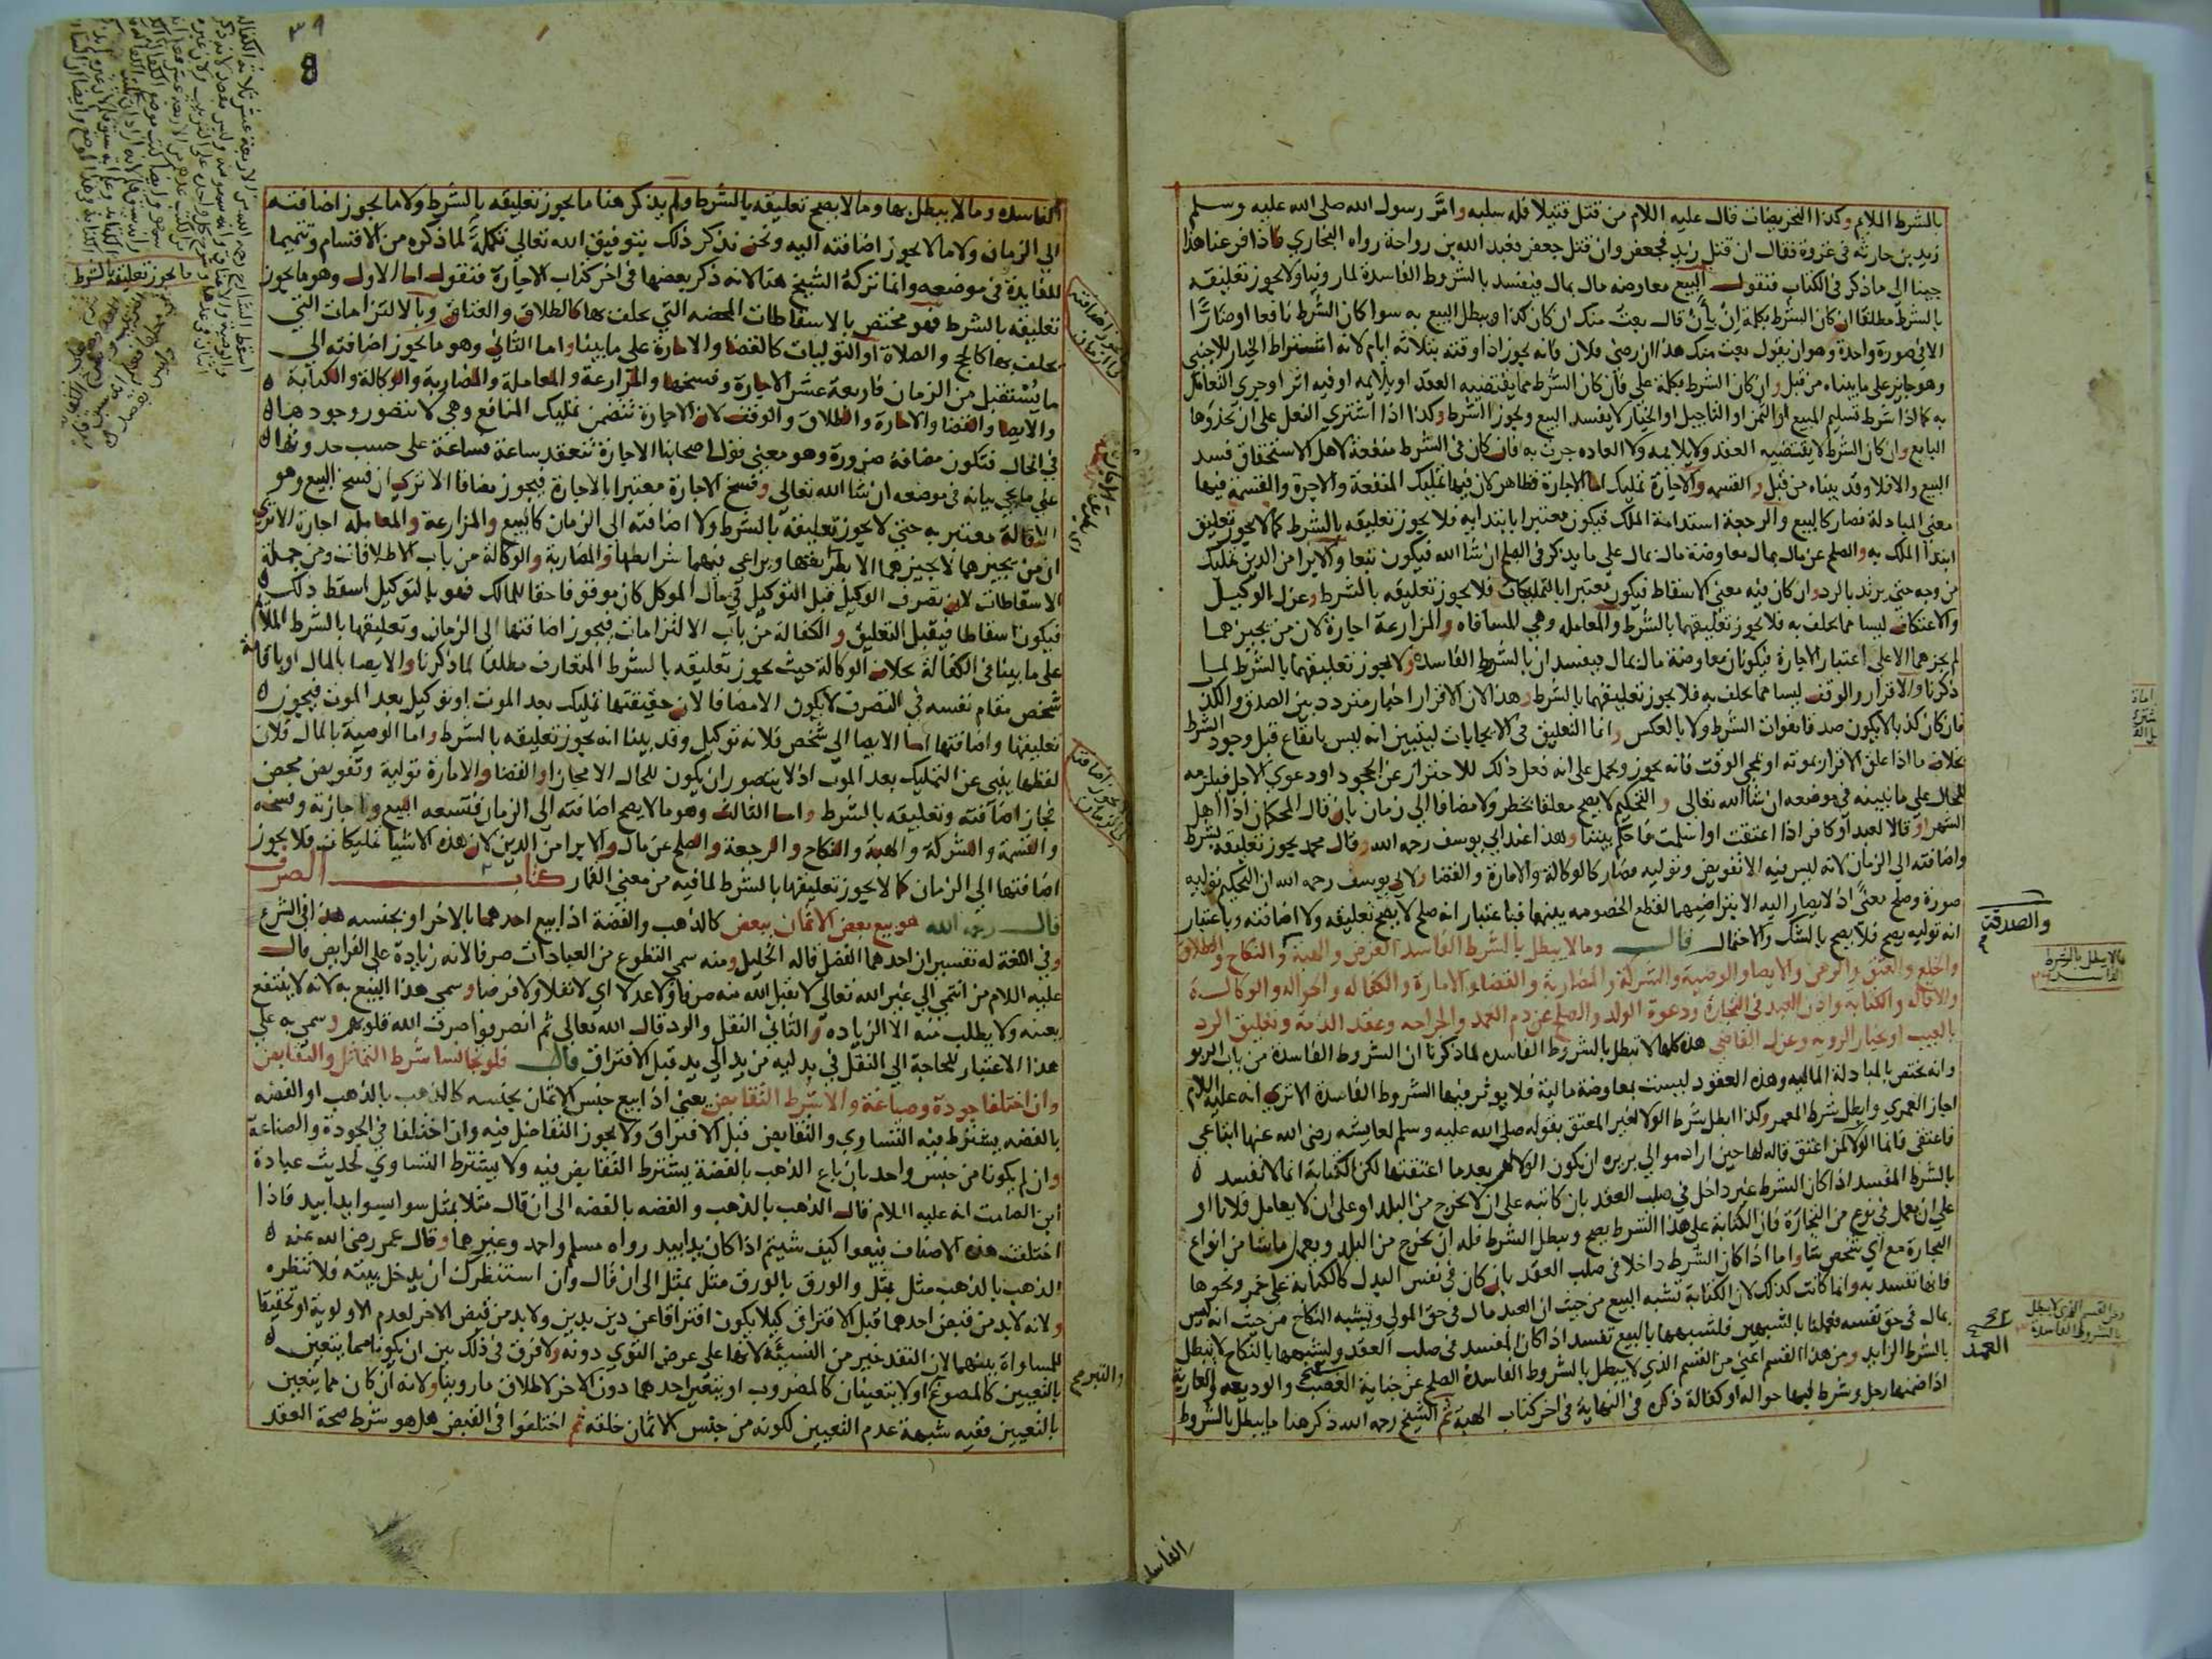 بالشرط الملايم وكذا التحريضات قال عليه اللام من قتل قتيلا فله سلبه وامّر رسول الله صلى الله عليه وسلم
زيد بن حارثه في غزوة فقال ان قتل زيد فجعفر وان قتل جعفر فعبد الله بن رواحة رواه البخاري فاذا فرغنا هذا
جينا الى ما ذكر في الكتاب فنقول البيع معاوضه مال بمال فيفسد بالشروط الفاسدة لما روينا ولا يجوز تعليقه
بالشرط مطلقا ان كان الشرط بكلمة ان بأن قال بعت منك ان كان كذا ويبطل البيع به سوا كان الشرط نافعا او ضارّا
الا في صورة واحدة وهو ان يقول بعت منك هذا ان رضى فلان فانه يجوز اذا وقته بثلاثة ايام لانه اشتراط الخيار للاجنبي
وهو جايز على ما بيناه من قبل وان كان الشرط بكلمة على فان كان الشرط مما يقتضيه العقد او يلايمه او فيه اثر او جري التعامل
به كما اذا شرط تسليم المبيع او الثمن او التاجيل او الخيار لا يفسد البيع ويجوز الشرط وكذا اذا اشتري النعل على ان يحذوها
البايع وان كان الشرط لا يقتضيه العقد ولا يلايمه ولا العاده جرت به فان كان في الشرط منفعة لاهل الاستحقاق فسد
البيع والا فلا وقد بيناه من قبل والقسمه والاجارة تمليك اما الاجارة فظاهر لان فيها تمليك المنفعة والاجرة والقسمة فيها
معنى المبادلة فصار كالبيع والرجعة استدامة الملك فيكون معتبرا بابتدايه فلا يجوز تعليقه بالشرط كما لا يجوز تعليق
ابتدا الملك به والصلح عن مال بمال معاوضة مال بمال على ما يذكر في الصلح ان شا الله فيكون تبعا والابرا من الدين تمليك
من وجه حتى يرتد بالرد وان كان فيه معنى الاسقاط فيكون معتبرا بالتمليكات فلا يجوز تعليقه بالشرط وعزل الوكيل
والاعتكاف ليسا مما يحلف به فلا يجوز تعليقهما بالشرط والمعامله وهي المساقاه والمزارعة اجارة لان من يجيزهما
لم يجزهما الا على اعتبار الاجارة فيكونان معاوضة مال بمال فيفسدان بالشرط الفاسده ولا يجوز تعليقهما بالشرط لما
ذكرنا والاقرار والوقف ليسا مما يحلف به فلا يجوز تعليقهما بالشرط وهذا لان الاقرار اخبار متردد بين الصدق والكذب
فان كان كذبا لا يكون صدقا بفوات الشرط ولا بالعكس وانما التعليق في الايجابات ليتبين انه ليس بايقاع قبل وجود الشرط
بخلاف ما اذا علق الاقرار بموته او بمجي الوقت فانه يجوز ويحمل على انه فعل ذلك للاحتراز عن الجحود او دعوي الاجل فيلزمه
للحال على ما نبينه في موضعه ان شا الله تعالى والتحكيم لا يصح معلقا بخطر ولا مضافا الى زمان بان قال المحكمان اذا اهل
الشهر او قالا لعبد او كافر اذا اعتقت او اسلمت فاحكم بيننا وهذا عند ابي يوسف رحمه الله وقال محمد يجوز تعليقه بشرط
واضافته الى الزمان لانه ليس فيه الا تفويض وتوليه فصار كالوكالة والامارة والقضا ولابي يوسف رحمه الله ان التحكيم توليه
صورة وصلح معنًى اذ لا يصار اليه الا بتراضيهما لقطع الخصومه بينهما فباعتبار انه صلح لا يصح تعليقه ولا اضافته وباعتبار
انه توليه يصح فلا يصح بالشك والاحتمال قال وما لا يبطل بالشرط الفاسد القرض والهبة والنكاح والطلاق
والخلع والعتق والرهن والايصا والوصية والشركة والمضاربة والقضا والامارة والكفاله والحواله والوكالة
والاقاله والكتابة واذن العبد في التجارة ودعوة الولد والصلح عن دم العمد والجراحه وعقد الذمة وتعليق الرد
بالعيب او بخيار الرويه وعزل القاضي هذه كلها لا تبطل بالشروط الفاسده لما ذكرنا ان الشروط الفاسدة من باب الربو
وانه يختص بالمبادلة الماليه وهذه العقود ليست بمعاوضة مالية فلا يوثر فيها الشروط الفاسدة الا تري انه عليه اللام
اجاز العمري وابطل شرط المعمر وكذا ابطل شرط الولا لغير المعتق بقوله صلى الله عليه وسلم لعايشه رضى الله عنها ابتاعي
فاعتقى فانما الولا لمن اعتق قاله لها حين اراد موالي بريره ان يكون الولا لهم بعدما اعتقتها لكن الكتابة انما لا تفسد
بالشرط المفسد اذا كان الشرط غير داخل في صلب العقد بان كاتبه على ان لا يخرج من البلد او على ان لا يعامل فلانا او
على ان يعمل في نوع من التجارة فان الكتابة على هذا الشرط يصح ويبطل الشرط فله ان يخرج من البلد ويعمل ما شا من انواع
التجارة مع اي شخص شا واما اذا كان الشرط داخلا في صلب العقد بان كان في نفس البدل كالكتابة على خمر ونحوها
فانها تفسد به وانما كانت كذلك لان الكتابة تشبه البيع من حيث ان العبد مال في حق المولي وتشبه النكاح من حيث انه ليس
بمال في حق نفسه فعملنا بالشبهين فلشبهها بالبيع تفسد اذا كان المفسد في صلب العقد ولشبهها بالنكاح لا تبطل
بالشرط الزايد ومن هذا القسم اعني من القسم الذي لا يبطل بالشروط الفاسدة الصلح عن جناية الغصب والوديعه والعارية
اذا ضمنها رجل وشرط فيها حواله او كفالة ذكره في النهاية في اخر كتاب الهبة ثم الشيخ رحمه الله ذكر هنا ما يبطل بالشروط
والصدقة
مالا يبطل بالشرط
الفاسد
ومن القسم الذي لا يبطل
بالشروط الفاسدة
العمد
الفاسد
الفاسده وما لا يبطل بها وما لا يصح تعليقه بالشرط ولم يذكر هنا ما يجوز تعليقه بالشرط ولا ما يجوز اضافته
الى الزمان ولا ما لا يجوز اضافته اليه ونحن نذكر ذلك بتوفيق الله تعالى تكملةً لما ذكره من الاقسام وتتميما
للفايدة في موضعه وانما تركه الشيخ هنا لانه ذكر بعضها في اخر كتاب الاجارة فنقول اما الاول وهو ما يجوز
تعليقه بالشرط فهو مختص بالاسقاطات المحضه التي يحلف بها كالطلاق والعتاق وبالالتزامات التي
يحلف بها كالحج والصلاة او التوليات كالقضا والامارة على ما بينا واما الثاني وهو ما يجوز اضافته الى
ما يستقبل من الزمان فاربعة عشر الاجارة وفسخها والمزارعة والمعاملة والمضاربة والوكالة والكفالة
والايصا والقضا والامارة والطلاق والوقف لان الاجارة تتضمن تمليك المنافع وهي لا يتصور وجودها
في الحال فتكون مضافة ضرورة وهو معنى قول اصحابنا الاجارة تنعقد ساعة فساعة على حسب حدوثها
على ما يجي بيانه في موضعه ان شا الله تعالى وفسخ الاجارة معتبرا بالاجارة فيجوز مضافا الا تري ان فسخ البيع وهو
الاقالة معتبر به حتى لا يجوز تعليقه بالشرط ولا اضافته الى الزمان كالبيع والمزارعة والمعامله اجارة الا تري
ان من يجيزهما لا يجيزهما الا بطريقها ويراعى فيهما شرايطها والمضاربة والوكالة من باب الاطلاقات ومن جملة
الاسقاطات لان تصرف الوكيل قبل التوكيل في مال الموكل كان موقوفا حقا للمالك فهو بالتوكيل اسقط ذلك
فيكون اسقاطا فيقبل التعليق والكفالة من باب الالتزامات فيجوز اضافتها الى الزمان وتعليقها بالشرط الملايم
على ما بينا في الكفالة بخلاف الوكالة حيث يجوز تعليقه بالشرط المتعارف مطلقا لما ذكرنا والايصا بالمال او باقامة
شخص مقام نفسه في التصرف لا يكون الا مضافا لان حقيقتها تمليك بعد الموت او توكيل بعد الموت فيجوز
تعليقها واضافتها اما الايصا الى شخص فلانه توكيل وقد بينا انه يجوز تعليقه بالشرط واما الوصية بالمال فلان
لفظها ينبي عن التمليك بعد الموت اذ لا يتصور ان يكون للحال الا مجازا والقضا والامارة تولية وتفويض محض
فجاز اضافته وتعليقه بالشرط واما الثالث وهو ما لا يصح اضافته الى الزمان فتسعه البيع واجازته وفسخه
والقسمة والشركة والهبة والنكاح والرجعة والصلح عن مال والابرا من الدين لان هذه الاشيا تمليكات فلا يجوز
اضافتها الى الزمان كما لا يجوز تعليقها بالشرط لما فيه من معنى القمار كتاب الصرف
قال رحمه الله هو بيع بعض الاثمان ببعض كالذهب والفضة اذا بيع احدهما بالاخر او بجنسه هذا في الشرع
وفي اللغة له تفسيران احدهما الفضل قاله الخليل ومنه سمي التطوع من العبادات صرفا لانه زيادة على الفرايض قال
عليه اللام من انتمي الي غير ابيه لا يقبل الله منه صرفا ولا عدلا اي لا نفلا ولا فرضا وسمي هذا البيع به لانه لا ينتفع
بعينه ولا يطلب منه الا الزياده والثاني النقل والرد قال الله تعالى ثم انصرفوا صرف الله قلوبهم وسمي به على
هذا الاعتبار للحاجة الى النقل في بدليه من يد الى يد قبل الافتراق قال فلو تجانسا شرط التماثل والتقابض
وان اختلفا جودة وصياغة والا شرط التقابض يعني اذا بيع جنس الاثمان بجنسه كالذهب بالذهب او الفضه
بالفضه يشترط فيه التساوي والتقابض قبل الافتراق ولا يجوز التفاضل فيه وان اختلفا في الجودة والصناعة
وان لم يكونا من جنس واحد بان باع الذهب بالفضة يشترط التقابض فيه ولا يشترط التساوي لحديث عبادة
ابن الصامت انه عليه اللام قال الذهب بالذهب والفضه بالفضه الى ان قال مثلا بمثل سوا بسوا يدا بيد فاذا
اختلفت هذه الاصناف بيعوا كيف شيتم اذا كان يدا بيد رواه مسلم واحمد وغيرهما وقال عمر رضى الله عنه
الذهب بالذهب مثل بمثل والورق بالورق مثل بمثل الى ان قال وان استنظرك ان يدخل بيته فلا تنظره
ولانه لا بد من قبض احدهما قبل الافتراق كيلا يكون افتراقا عن دين بدين ولا بد من قبض الاخر لعدم الاولوية او تحقيقا
للمساواة بينهما لان النقد خير من النسيئة لانها على عرض التوي دونه ولا فرق في ذلك بين ان يكونا مما يتعين
بالتعيين كالمصوغ او لا يتعينان كالمضروب او يتعين احدهما دون الاخر لاطلاق ما روينا ولانه ان كان مما يتعين
بالتعيين ففيه شبهة عدم التعيين لكونه من جنس الاثمان خلقه ثم اختلفوا في القبض هل هو شرط صحة العقد
ما يجوز تعليقه بالشرط